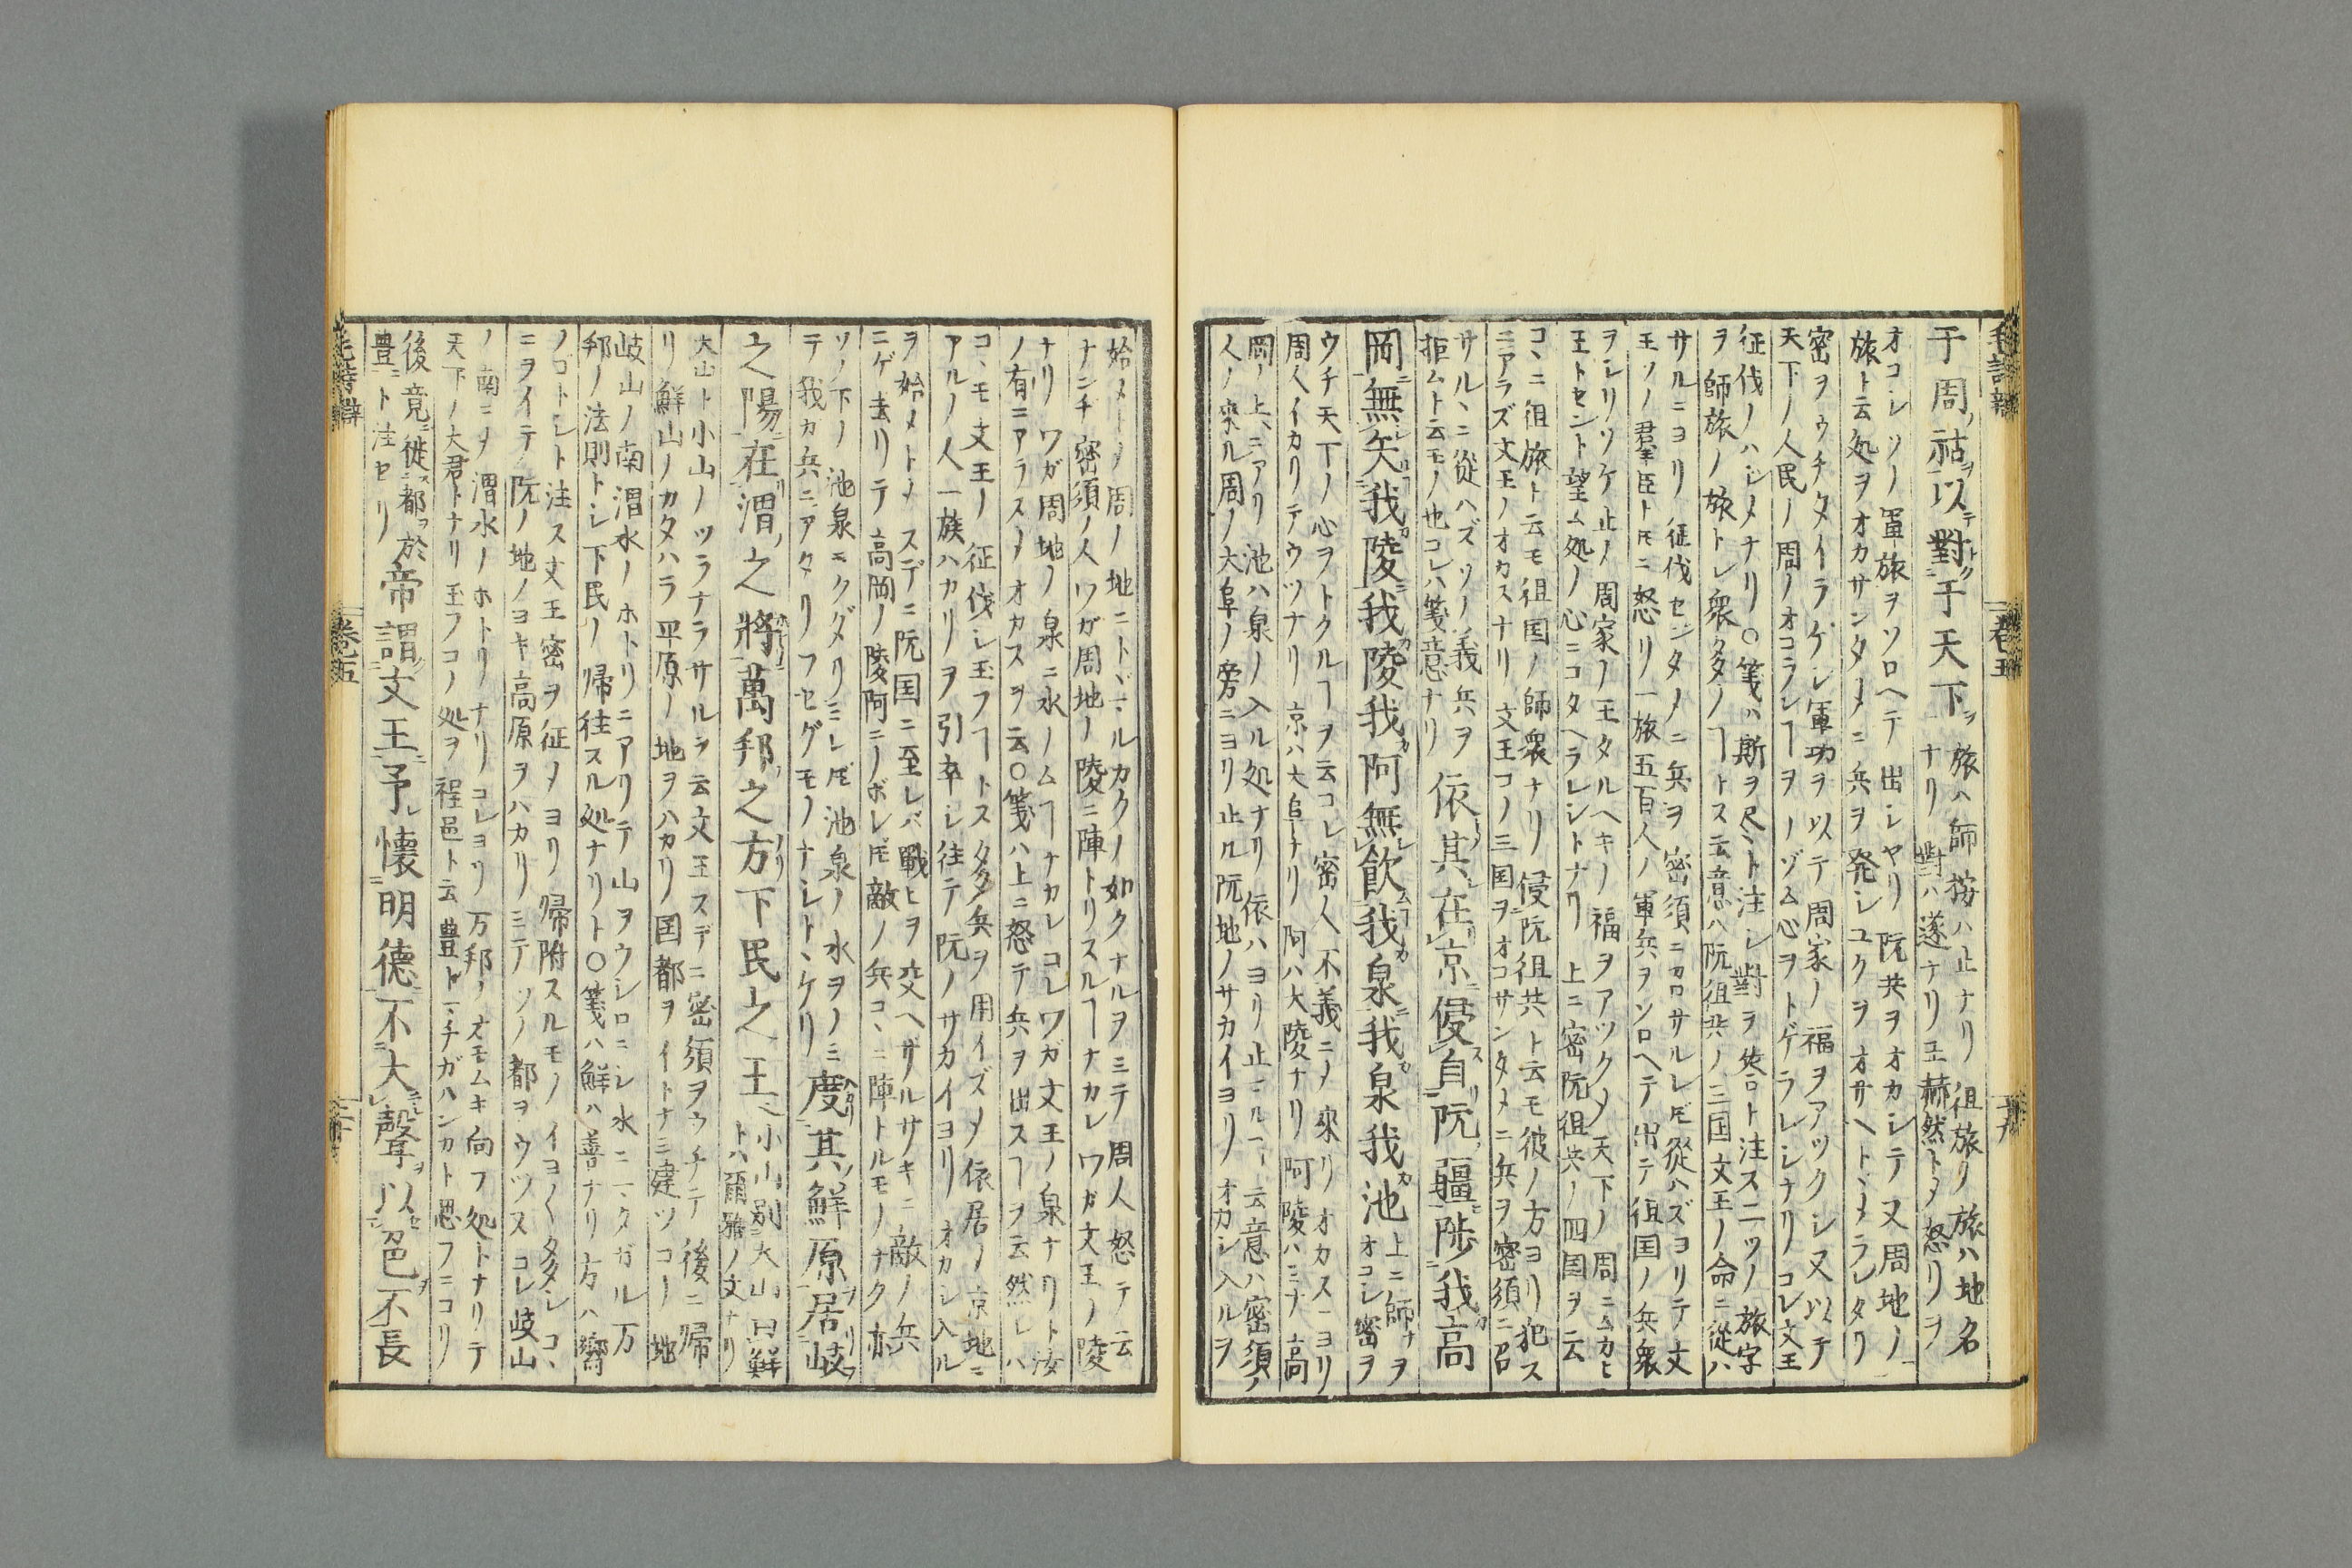 毛詩辨 卷五 十九
于周ノ祜ヲ以テ對于天下ヲ
旅ハ師按ハ止ナリ徂旅ノ旅ハ地名
ナリ對ハ遂ナリ王赫然トメ怒リヲ
オコシソノ軍旅ヲソロヘテ出シヤリ阮共ヲオカシテ又周地ノ
旅ト云処ヲオカサンタメニ兵ヲ発シユクヲオサヘトヾメラレタリ
密ヲウチタイラゲシ軍功ヲ以テ周家ノ福ヲアツクシ又以テ
天下ノ人民ノ周ノオコランヿヲノゾム心ヲトゲラレシナリコレ文王
征伐ノハシメナリ○箋ハ斯ヲ尽ト注シ對ヲ荅ト注ス二ツノ旅字
ヲ師旅ノ旅トシ衆多ノヿトス云意ハ阮徂共ノ三国文王ノ命ニ從ハ
サルニヨリ征伐センタメニ兵ヲ密須ニカロサルレ𪜈從ハズヨリテ文
王ソノ羣臣ト𪜈ニ怒リ一旅五百人ノ軍兵ヲソロヘテ出テ徂国ノ兵衆
ヲシリソケ止メ周家ノ王タルヘキノ福ヲアツクメ天下ノ周ニムカヒ
王トセント望ム処ノ心ニコタヘラレシトナリ上ニ密阮徂共ノ四国ヲ云
コヽニ徂旅ト云モ徂国ノ師衆ナリ侵阮徂共ト云モ彼ノ方ヨリ犯ス
ニアラズ文王ノオカスナリ文王コノ三国ヲオコサンタメニ兵ヲ密須ニ召
サルヽニ從ハズソノ義兵ヲ
拒ムト云モノ也コレハ箋意ナリ
依其在京侵自阮疆陟我高
岡無矢我陵我陵我阿無飲我泉我泉我池
上ニ師ナヲ
オコシ密ヲ
ウチ天下ノ心ヲトクルヿヲ云コレ密人不義ニメ來リオカスニヨリ
周人イカリテウツナリ京ハ大阜ナリ阿ハ大陵ナリ阿陵ハミナ高
岡ノ上ニアリ池ハ泉ノ入ル処ナリ依ハヨリ止ニルヿ云意ハ密須ノ
人ノ來ル周ノ大阜ノ旁ニヨリ止ル阮地ノサカイヨリオカシ入ルヲ
始メトメ周ノ地ニトヾマルカクノ如クナルヲミテ周人怒テ云
ナンヂ密須ノ人ワガ周地ノ陵ニ陣トリスルヿナカレワガ文王ノ陵
ナリワガ周地ノ泉ニ水ノムヿナカレコレワガ文王ノ泉ナリト汝
ノ有ニアラスメオカスヲ云○箋ハ上ニ怒テ兵ヲ出スヿヲ云然レハ
コヽモ文王ノ征伐シ玉フヿトス多兵ヲ用イズメ依居ノ京地ニ
アルノ人一族ハカリヲ引率シ往テ阮ノサカイヨリオカシ入ル
ヲ始メトメスデニ阮国ニ至レバ戰ヒヲ交ヘサルサキニ敵ノ兵
ニゲ去リテ高岡ノ陵阿ニノボレ𪜈敵ノ兵コヽニ陣トルモノナク亦
ソノ下ノ池泉エクダリミレ𪜈池泉ノ水ヲノミ
テ我カ兵ニアタリフセグモノナシトヽケリ
度其鮮原居岐
之陽在渭之將萬邦之方下民之王
小山別大山曰鮮
トハ爾雅ノ文ナリ
大山ト小山ノツラナラサルヲ云文王スデニ密須ヲウチテ後ニ帰
リ鮮山ノカタハラ平原ノ地ヲハカリ国都ヲイトナミ建ツコノ地
岐山ノ南渭水ノホトリニアリテ山ヲウシロニシ水ニシタガル万
邦ノ法則トシ下民ノ帰往スル処ナリト○箋ハ鮮ハ善ナリ方ハ嚮
ノゴトシト注ス文王密ヲ征メヨリ帰附スルモノイヨ〱多シコヽ
ニヲイテ阮ノ地ノヨキ高原ヲハカリミテソノ都ヲウツスコレ岐山
ノ南ニメ渭水ノホトリナリコレヨリ万邦ノオモムキ向フ処トナリテ
天下ノ大君トナリ玉フコノ処ヲ程邑ト云豊トマチガハンカト思フニヨリ
後竟徙都於
豊ト注セリ
帝謂文王予懷明德不大聲以色不長
毛詩辨 卷五 二十